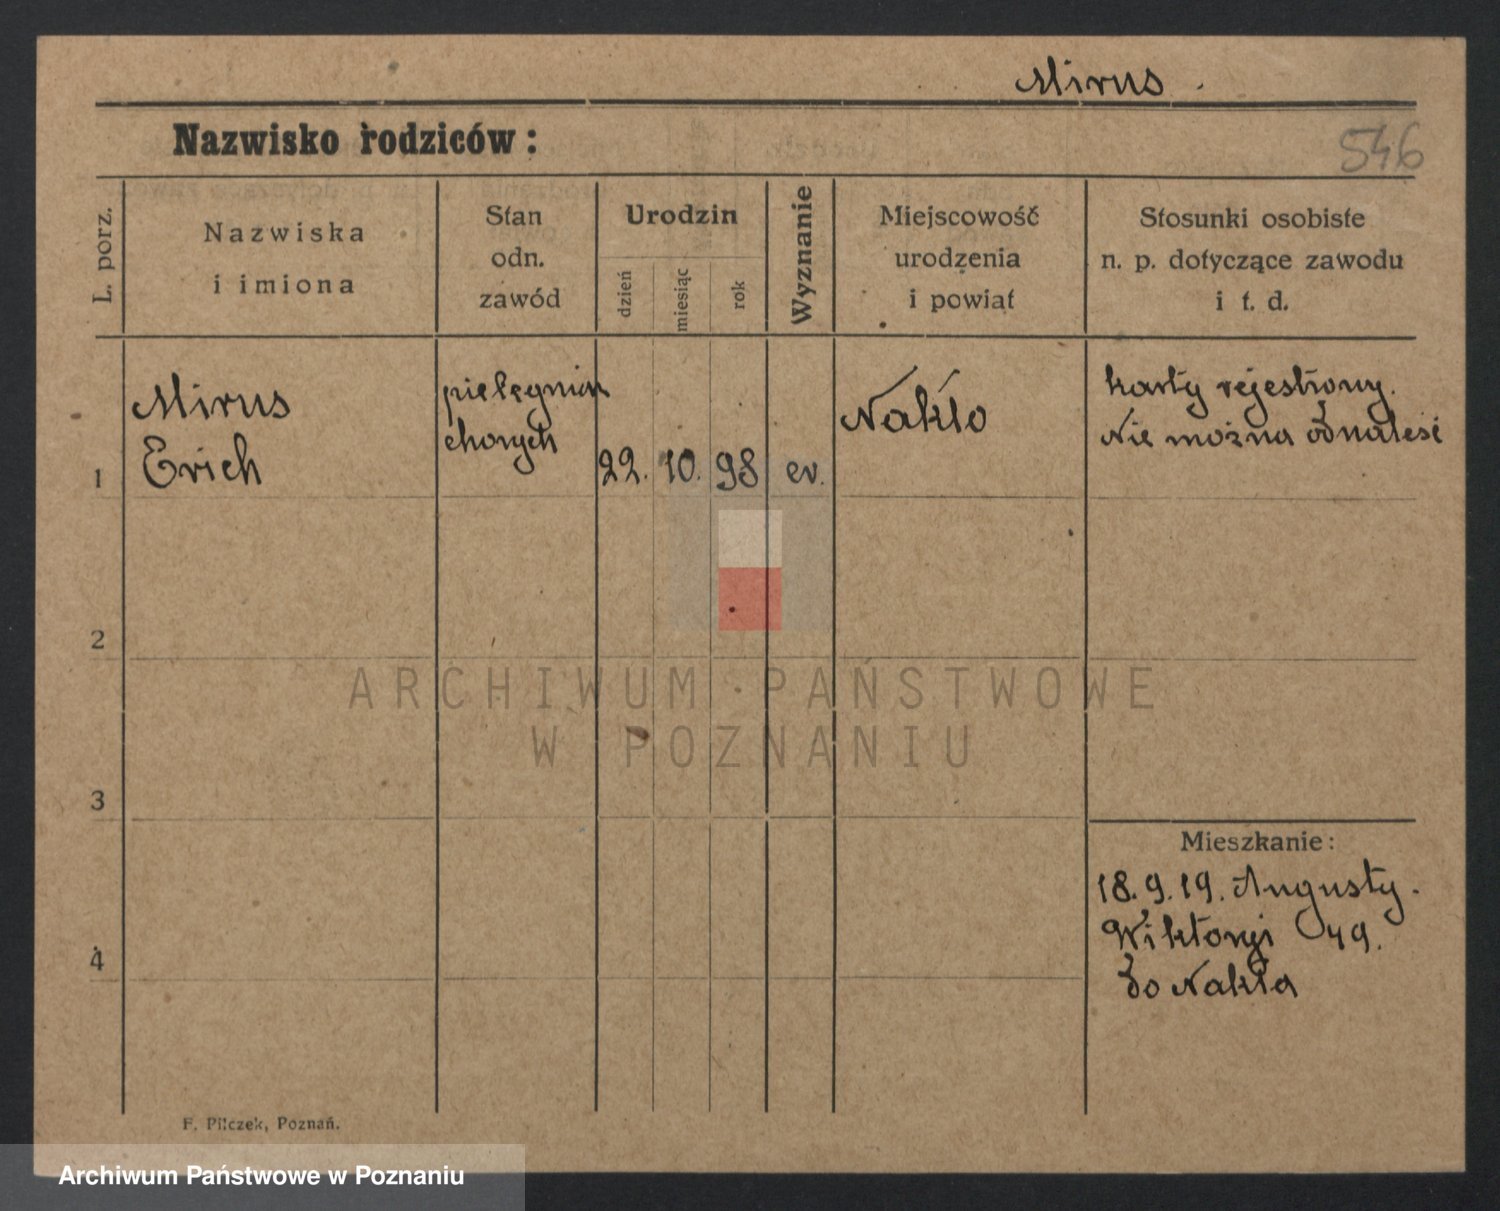 Mirus.
Nazwisko rodziców:
546
L. porz.
Nazwiska
i imiona
Stan
odn.
zawód
Urodzin
dzień
miesiąc
rok
Wyznanie
Miejscowość
urodzenia
i powiat
Stosunki osobiste
n. p. dotyczące zawodu
i t. d.
1
Mirus
Erich
chorych
22. 10. 98
ev.
Nakło
karty rejestrowy.
Nie można odnaleść
2
3
4
Mieszkanie:
18.9.19. Augusty.
Wiktoryi 49.
do Nakła
F. Pilczek, Poznań.
ARCHIWUM PAŃSTWOWE
W POZNANIU
Archiwum Państwowe w Poznaniu